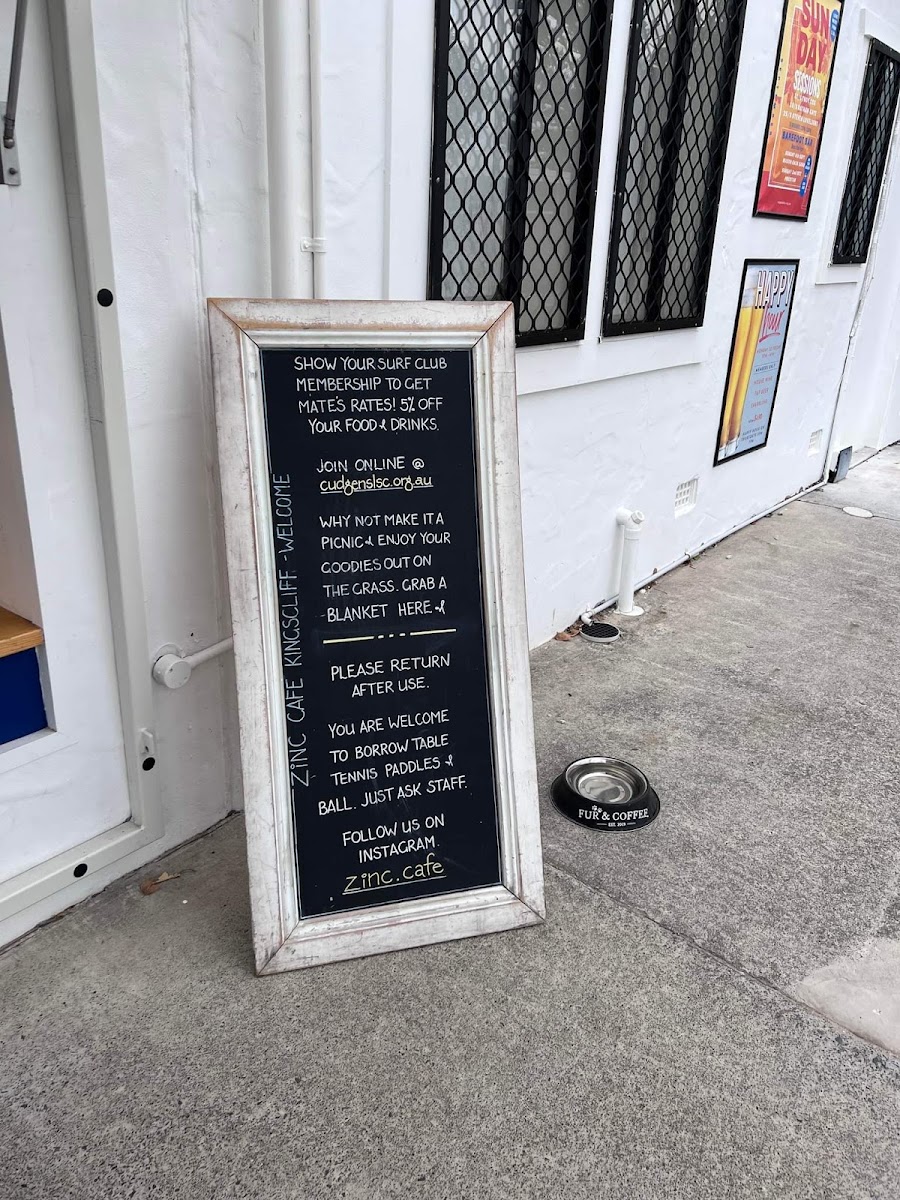 SHOW YOUR SURF CLUB
MEMBERSHIP TO GET
MATE'S RATES! 5% OFF
YOUR FOOD & DRINKS.
JOIN ONLINE @
cudgenslsc.org.au
WHY NOT MAKE IT A
PICNIC & ENJOY YOUR
GOODIES OUT ON
THE GRASS. GRAB A
BLANKET HERE &
PLEASE RETURN
AFTER USE.
YOU ARE WELCOME
TO BORROW TABLE
TENNIS PADDLES &
BALL. JUST ASK STAFF.
FOLLOW US ON
INSTAGRAM.
zinc.cafe
ZINC CAFE KINGSCLIFF - WELCOME
FUR & COFFEE
EST. 2019
SUN
DAY
SESSIONS
BAREFOOT BAR
HAPPY
Hour